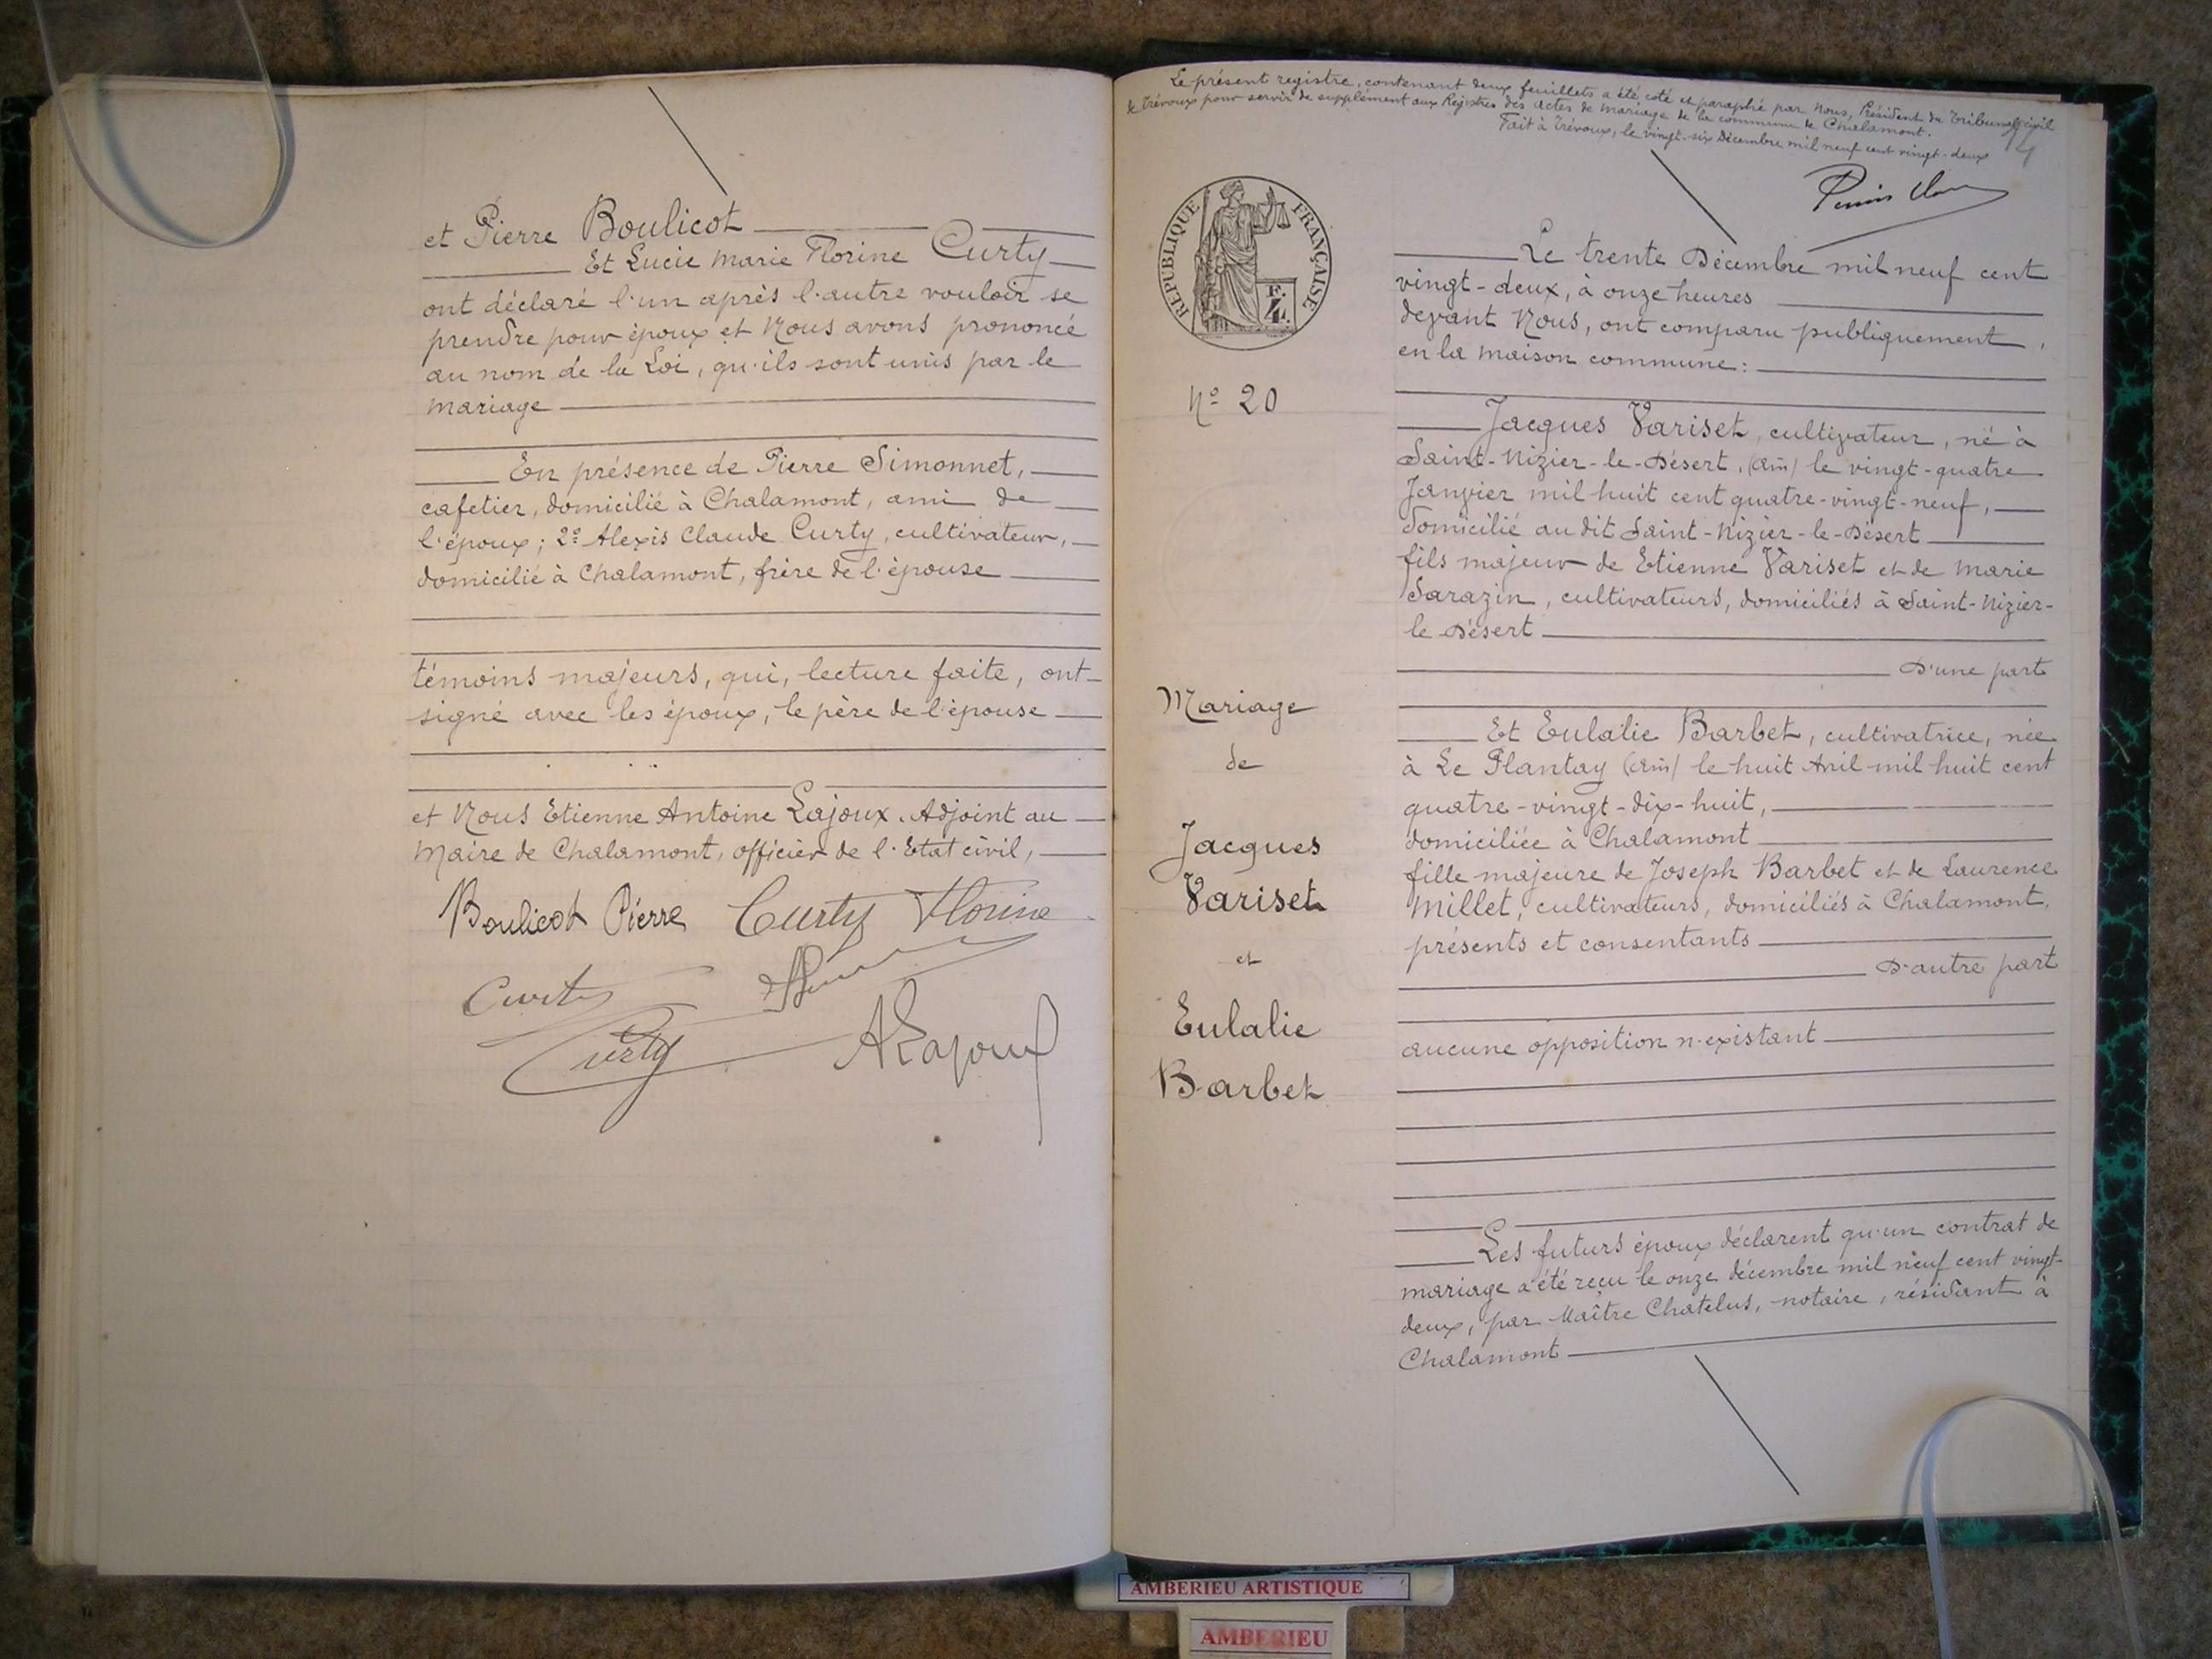 et Pierre Boulicot
Et Lucie Marie Florine Curty
ont déclaré l'un après l'autre vouloir se
prendre pour époux et Nous avons prononcé
au nom de la Loi, qu'ils sont unis par le
mariage
En présence de Pierre Simonnet,
cafetier, domicilié à Chalamont, ami de
l'époux; 2º Alexis Claude Curty, cultivateur,
domicilié à Chalamont, frère de l'épouse
témoins majeurs, qui, lecture faite, ont
signé avec les époux, le père de l'épouse
et Nous Etienne Antoine Lajoux, Adjoint au
Maire de Chalamont, officier de l'Etat civil,
Boulicot Pierre Curty Florine
Curty
Curty ALajoux
Le présent registre, contenant deux feuillets a été coté et paraphé par Nous, Président du Tribunal civil
de Trévoux pour servir de supplément aux Registres des actes de Mariage de la commune de Chalamont.
Fait à Trévoux, le vingt-six Décembre mil neuf cent vingt-deux
RÉPUBLIQUE FRANÇAISE
Nº 20
Mariage
de
Jacques
Variset
et
Eulalie
Barbet
Le trente Décembre mil neuf cent
vingt-deux, à onze heures
devant Nous, ont comparu publiquement,
en la maison commune:
Jacques Variset, cultivateur, né à
Saint-Nizier-le-Désert, (Ain) le vingt-quatre
Janvier mil huit cent quatre-vingt-neuf,
domicilié au dit Saint-Nizier-le-Désert
fils majeur de Etienne Variset et de Marie
Sarazin, cultivateurs, domiciliés à Saint-Nizier-
le Désert
D'une part
Et Eulalie Barbet, cultivatrice, née
à Le Plantay (Ain) le huit Avril mil huit cent
quatre-vingt-dix-huit,
domiciliée à Chalamont
fille majeure de Joseph Barbet et de Laurence
Millet, cultivateurs, domiciliés à Chalamont,
présents et consentants
D'autre part
aucune opposition n'existant
Les futurs époux déclarent qu'un contrat de
mariage a été reçu le onze décembre mil neuf cent vingt-
deux, par Maître Chatelus, notaire, résidant à
Chalamont
AMBERIEU ARTISTIQUE
AMBERIEU